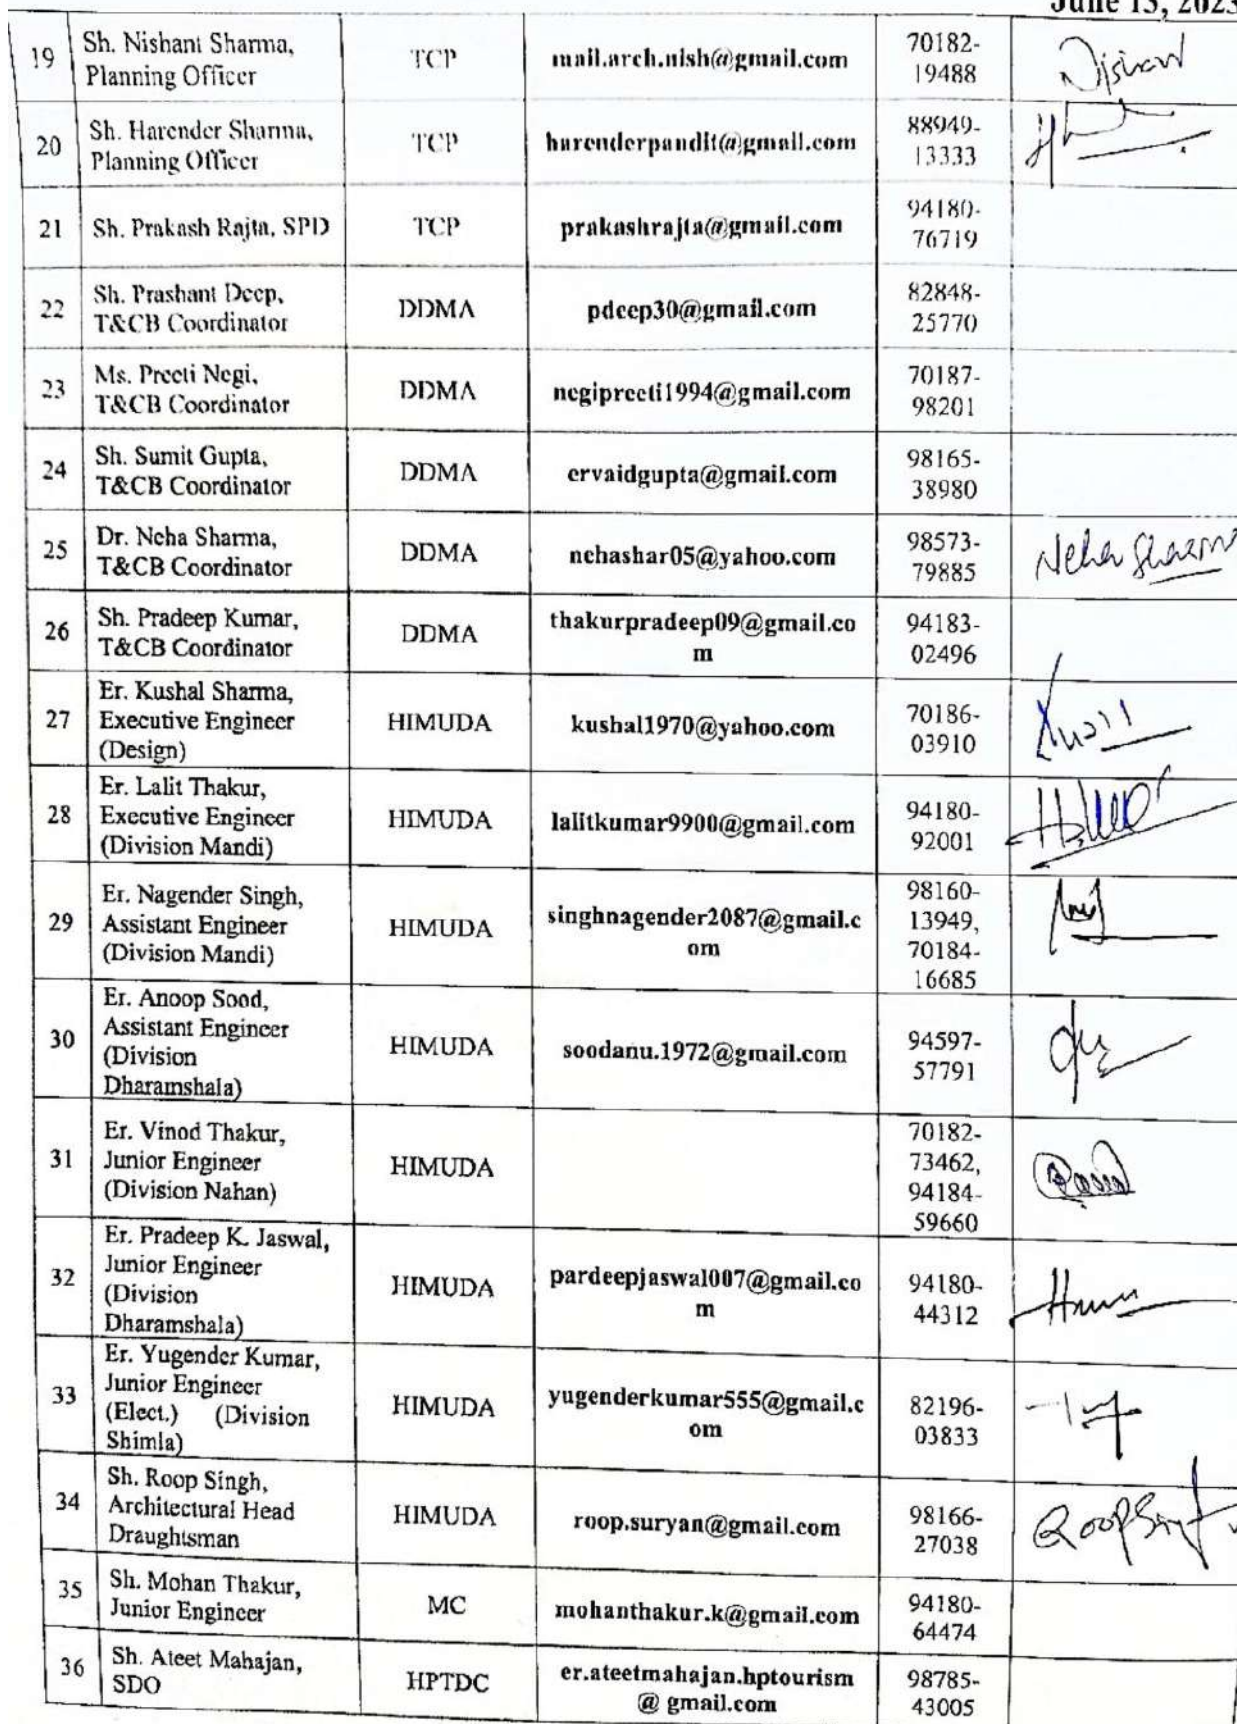 June 15, 2023
19 Sh. Nishant Sharma, Planning Officer TCP mail.arch.nish@gmail.com 70182-19488 Nishant
20 Sh. Harender Sharma, Planning Officer TCP harenderpandit@gmail.com 88949-13333
21 Sh. Prakash Rajta, SPD TCP prakashrajta@gmail.com 94180-76719
22 Sh. Prashant Deep, T&CB Coordinator DDMA pdeep30@gmail.com 82848-25770
23 Ms. Preeti Negi, T&CB Coordinator DDMA negipreeti1994@gmail.com 70187-98201
24 Sh. Sumit Gupta, T&CB Coordinator DDMA ervaidgupta@gmail.com 98165-38980
25 Dr. Neha Sharma, T&CB Coordinator DDMA nehashar05@yahoo.com 98573-79885 Neha Sharma
26 Sh. Pradeep Kumar, T&CB Coordinator DDMA thakurpradeep09@gmail.com 94183-02496
27 Er. Kushal Sharma, Executive Engineer (Design) HIMUDA kushal1970@yahoo.com 70186-03910
28 Er. Lalit Thakur, Executive Engineer (Division Mandi) HIMUDA lalitkumar9900@gmail.com 94180-92001
29 Er. Nagender Singh, Assistant Engineer (Division Mandi) HIMUDA singhnagender2087@gmail.com 98160-13949, 70184-16685
30 Er. Anoop Sood, Assistant Engineer (Division Dharamshala) HIMUDA soodanu.1972@gmail.com 94597-57791
31 Er. Vinod Thakur, Junior Engineer (Division Nahan) HIMUDA 70182-73462, 94184-59660
32 Er. Pradeep K. Jaswal, Junior Engineer (Division Dharamshala) HIMUDA pardeepjaswal007@gmail.com 94180-44312
33 Er. Yugender Kumar, Junior Engineer (Elect.) (Division Shimla) HIMUDA yugenderkumar555@gmail.com 82196-03833
34 Sh. Roop Singh, Architectural Head Draughtsman HIMUDA roop.suryan@gmail.com 98166-27038 Roop Singh
35 Sh. Mohan Thakur, Junior Engineer MC mohanthakur.k@gmail.com 94180-64474
36 Sh. Ateet Mahajan, SDO HPTDC er.ateetmahajan.hptourism@ gmail.com 98785-43005